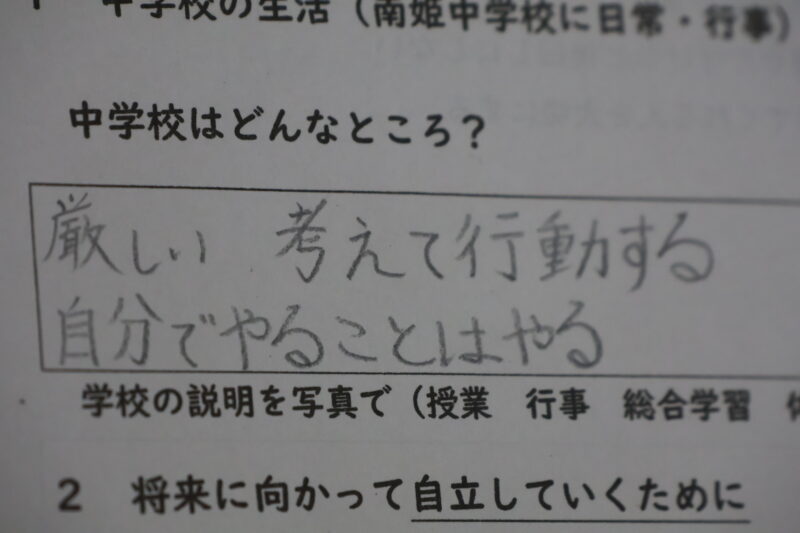 1 中学校の生活（南姫中学校に日常・行事）
中学校はどんなところ？
厳しい 考えて行動する
自分でやることはやる
学校の説明を写真で（授業 行事 総合学習
2 将来に向かって自立していくために